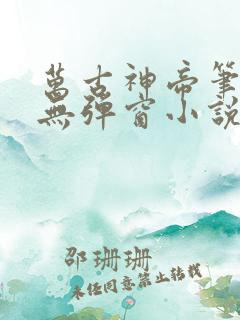 萬古神帝筆
無彈窗小說
邵珊珊
未经同意禁止转载